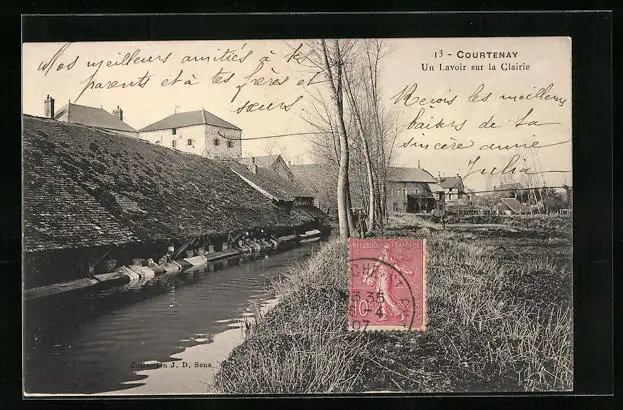 13 - COURTENAY
Un Lavoir sur la Clairie
Nos meilleurs amitiés à tes
parents et à tes frères et
sœurs
Reçois les meilleurs
baisers de ta
sincère amie
Julia
REPUBLIQUE FRANÇAISE
10
3 35
-4
07
Collection J. D. Sens